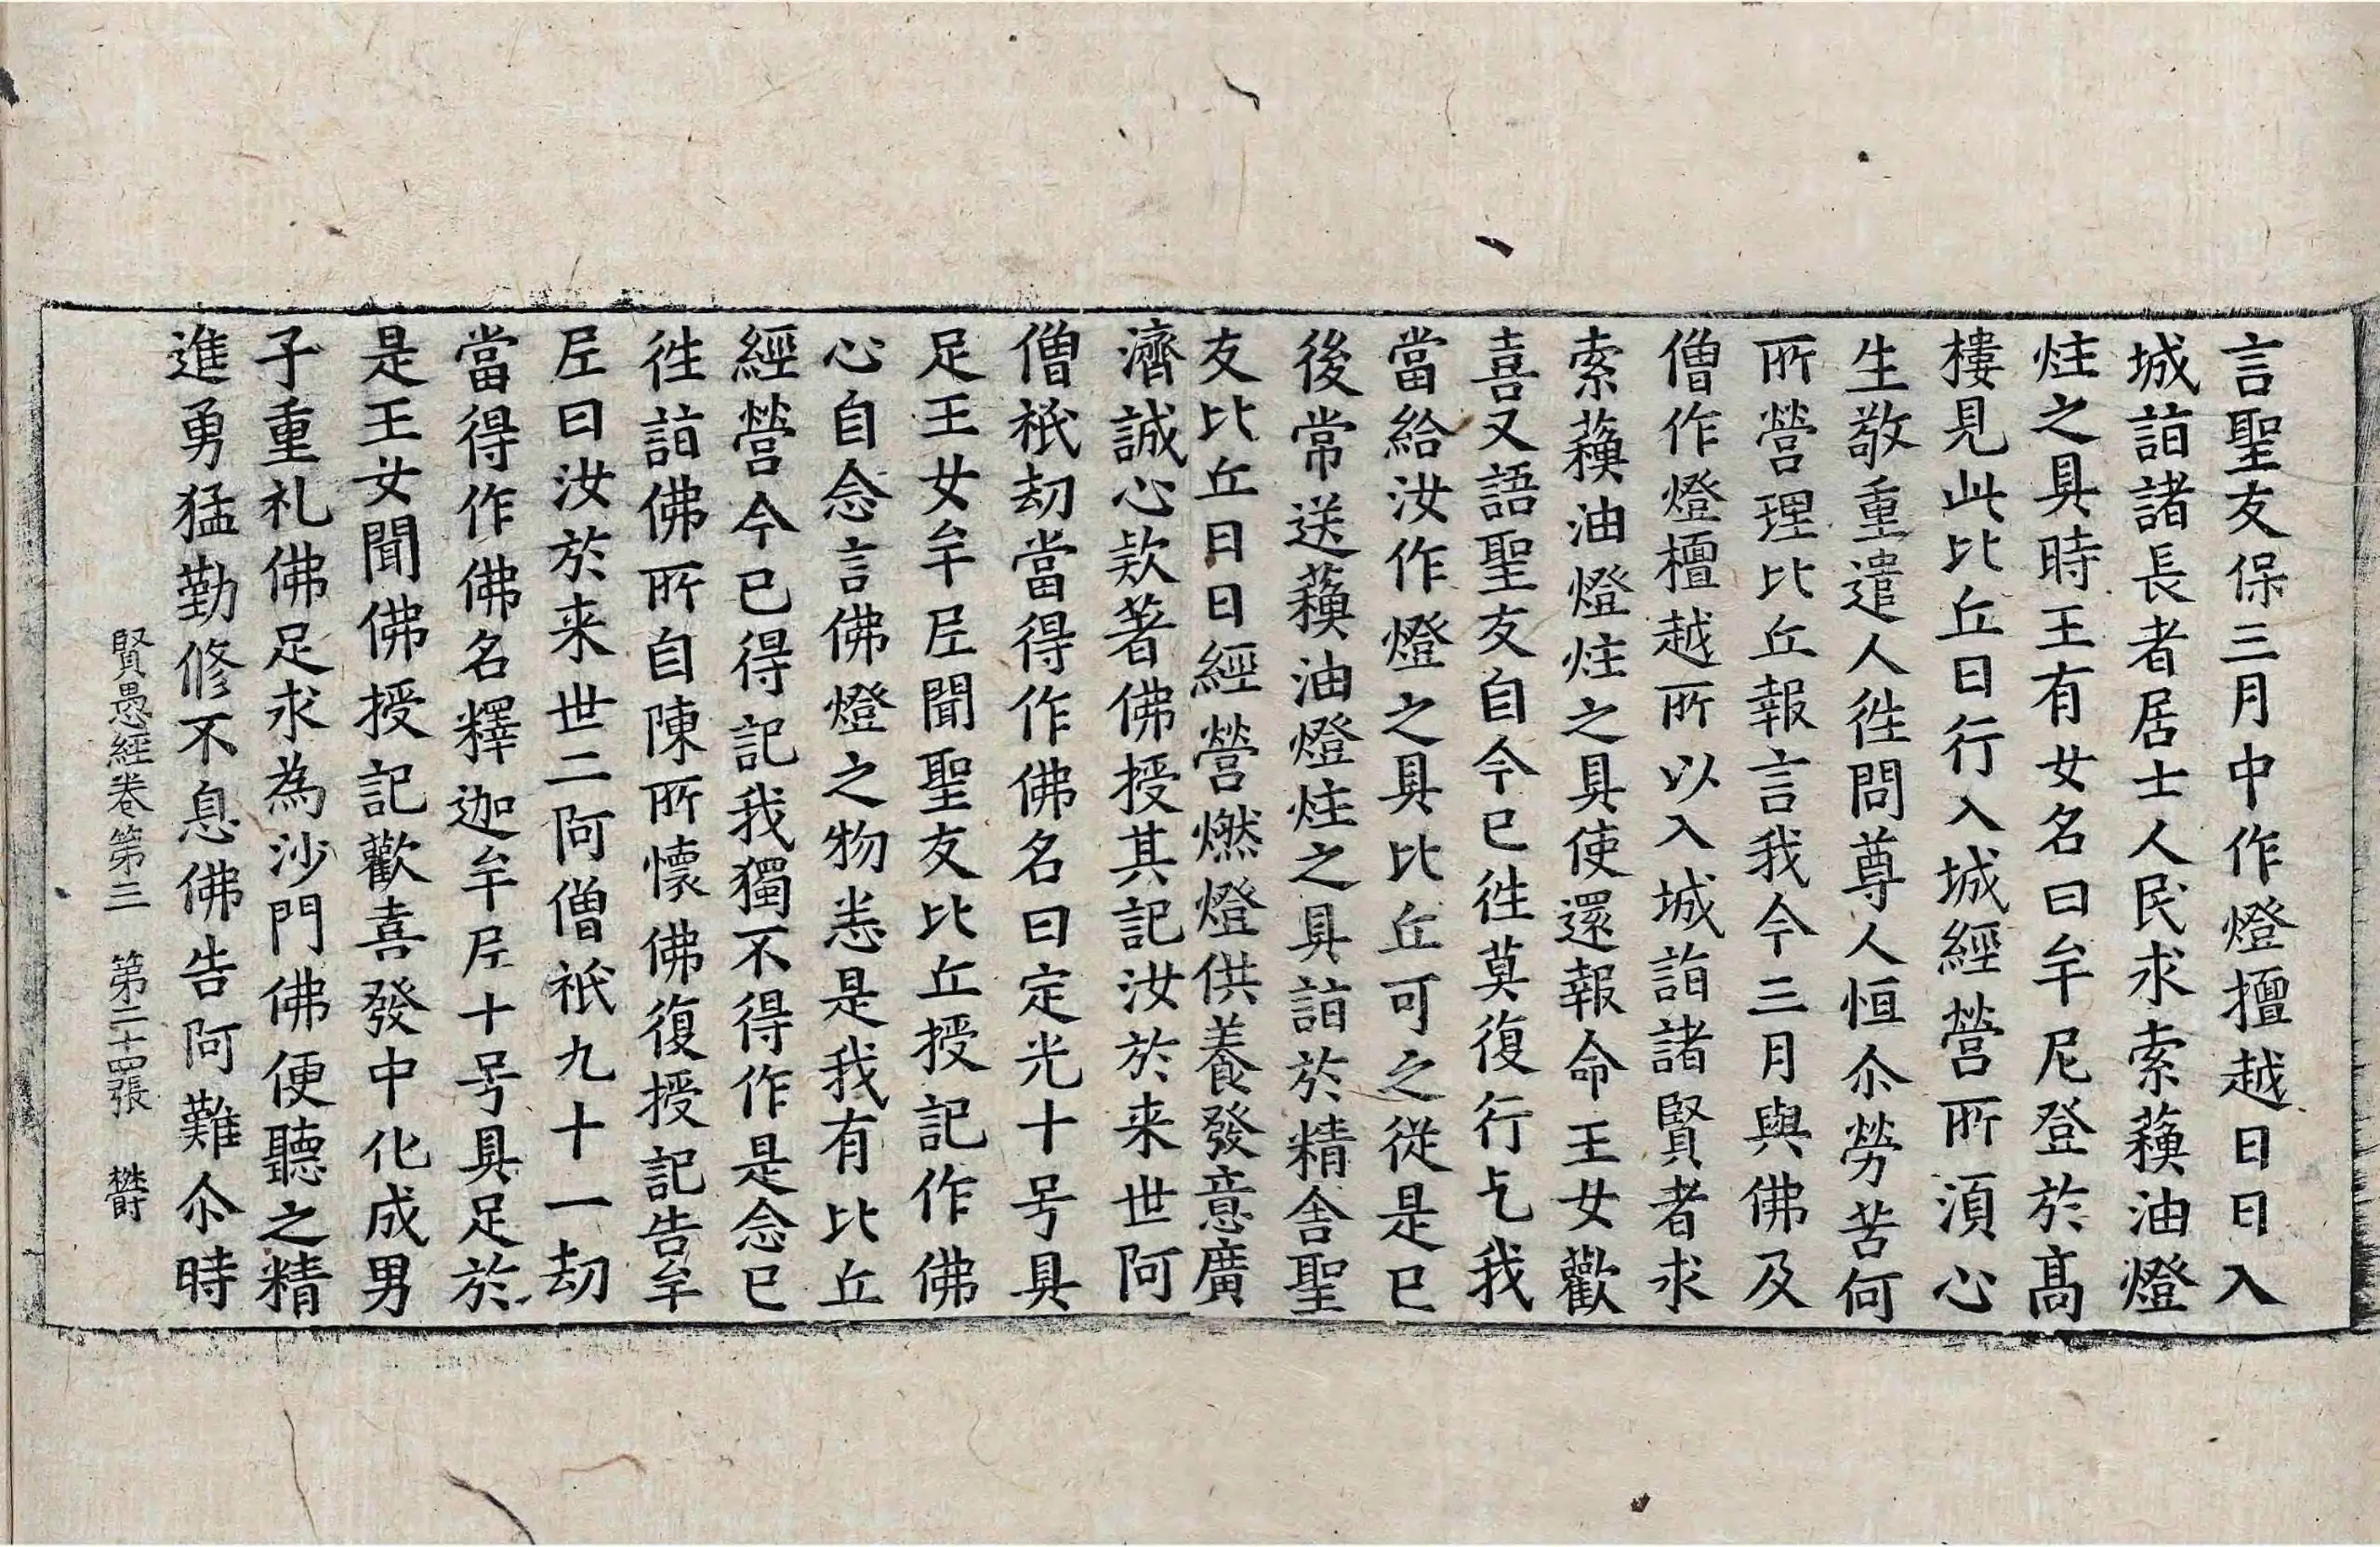 言聖友保三月中作燈擅越日日入
城詣諸長者居士人民求索蘓油燈
炷之具時王有女名曰牟尼登於髙
樓見此比丘日行入城經營所湏心
生敬重遣人徃問尊人恒尒勞苦何
所營理比丘報言我今三月與佛及
僧作燈檀越所以入城詣諸賢者求
索蘓油燈炷之具使還報命王女歡
喜又語聖友自今已徃莫復行乞我
當給汝作燈之具比丘可之從是已
後常送蘓油燈炷之具詣於精舎聖
友比丘日日經營燃燈供養發意廣
濟誠心欵著佛授其記汝於来世阿
僧祇劫當得作佛名曰定光十号具
足王女牟尼聞聖友比丘授記作佛
心自念言佛燈之物悉是我有比丘
經營今已得記我獨不得作是念已
徃詣佛所自陳所懷佛復授記告牟
尼曰汝於来世二阿僧祇九十一劫
當得作佛名釋迦牟尼十号具足於
是王女聞佛授記歡喜發中化成男
子重礼佛足求為沙門佛便聽之精
進勇猛勤修不息佛告阿難尒時
賢愚經卷第三 第二十四張 欝